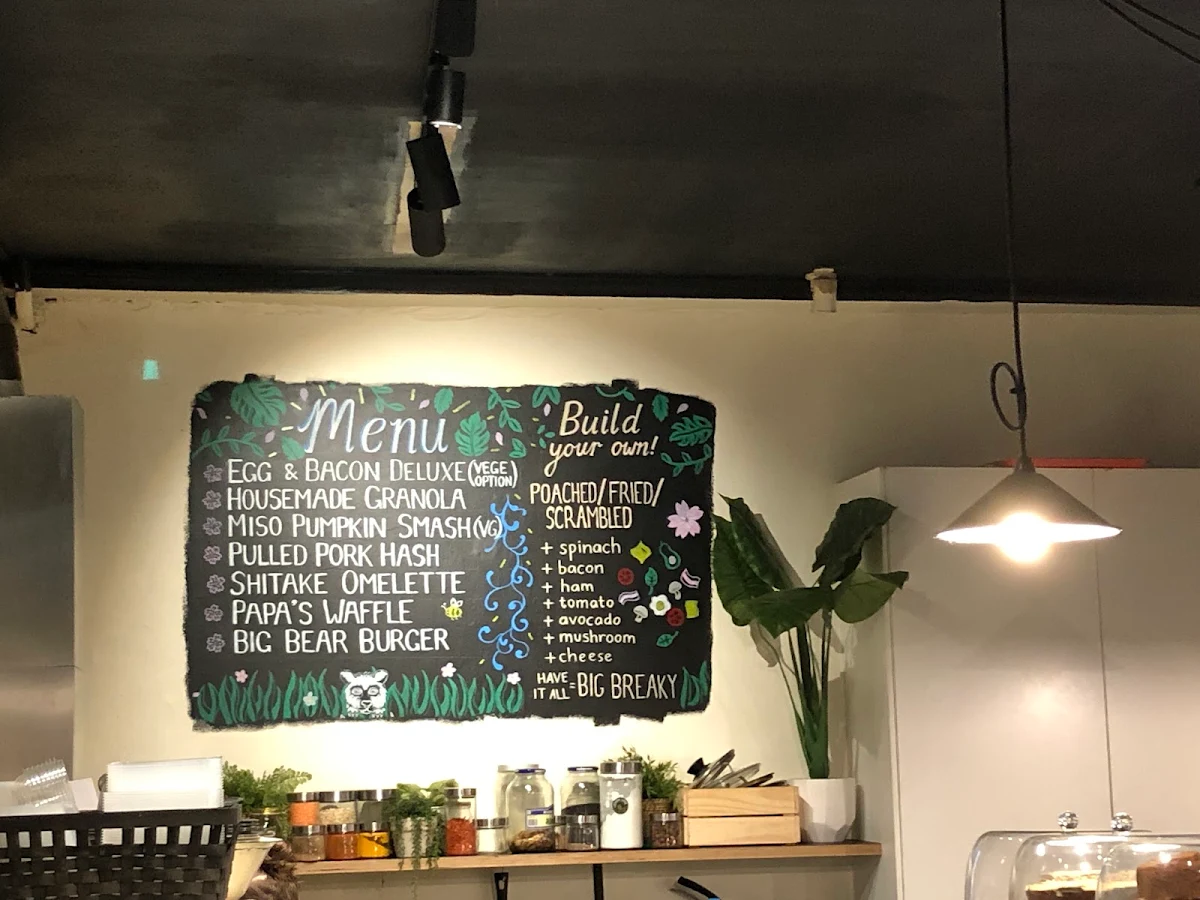 Menu
EGG & BACON DELUXE (VEGE OPTION)
HOUSEMADE GRANOLA
MISO PUMPKIN SMASH (VG)
PULLED PORK HASH
SHITAKE OMELETTE
PAPA'S WAFFLE
BIG BEAR BURGER
Build
your own!
POACHED/FRIED/
SCRAMBLED
+ spinach
+ bacon
+ ham
+ tomato
+ avocado
+ mushroom
+ cheese
HAVE IT ALL = BIG BREAKY